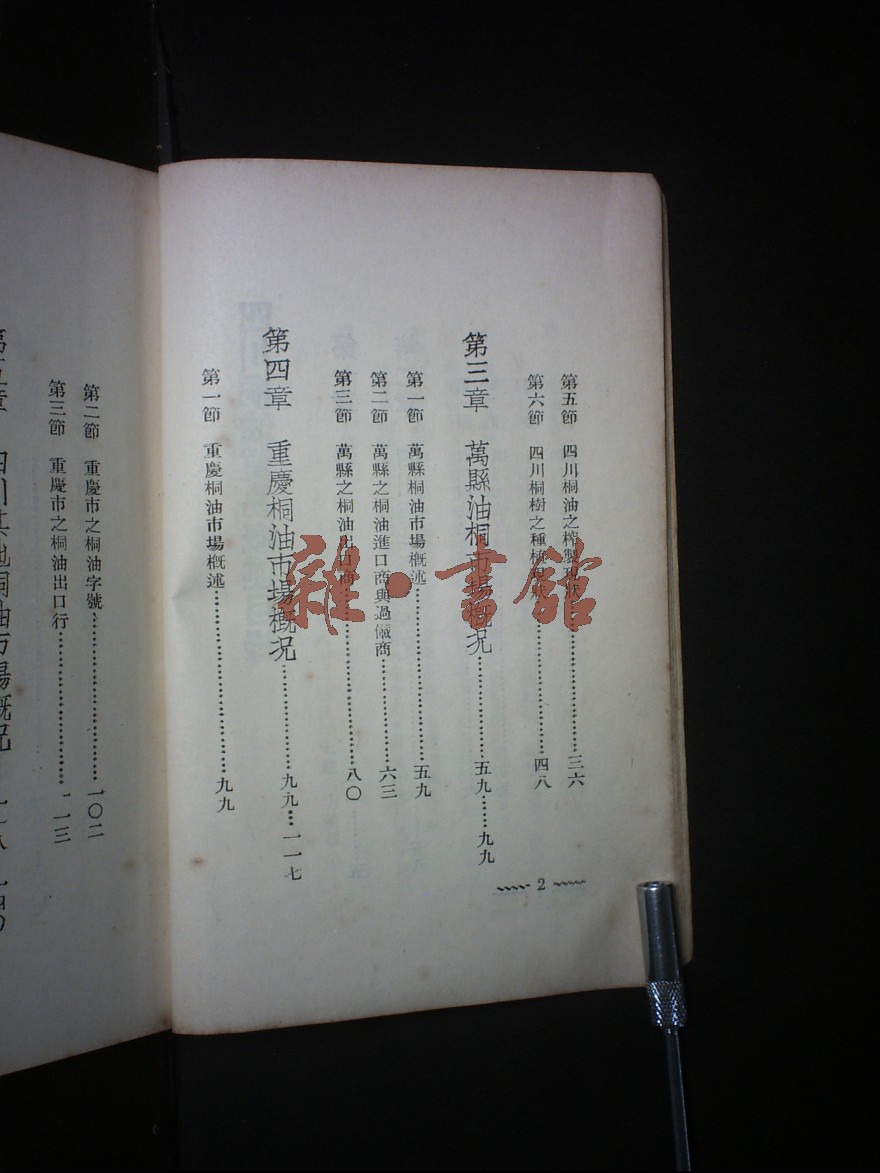 第五節　四川桐油之榨製現狀……三六
第六節　四川桐樹之種植現狀……四八
第三章　萬縣油桐市場概況……五九……九九
第一節　萬縣桐油市場概述……五九
第二節　萬縣之桐油進口商與過儎商……六三
第三節　萬縣之桐油出口商……八〇
第四章　重慶桐油市場概況……九九…一一七
第一節　重慶桐油市場概述……九九
2
第二節　重慶市之桐油字號……一〇二
第三節　重慶市之桐油出口行……一一三
第五章　四川其他桐油市場概況
雜·書館